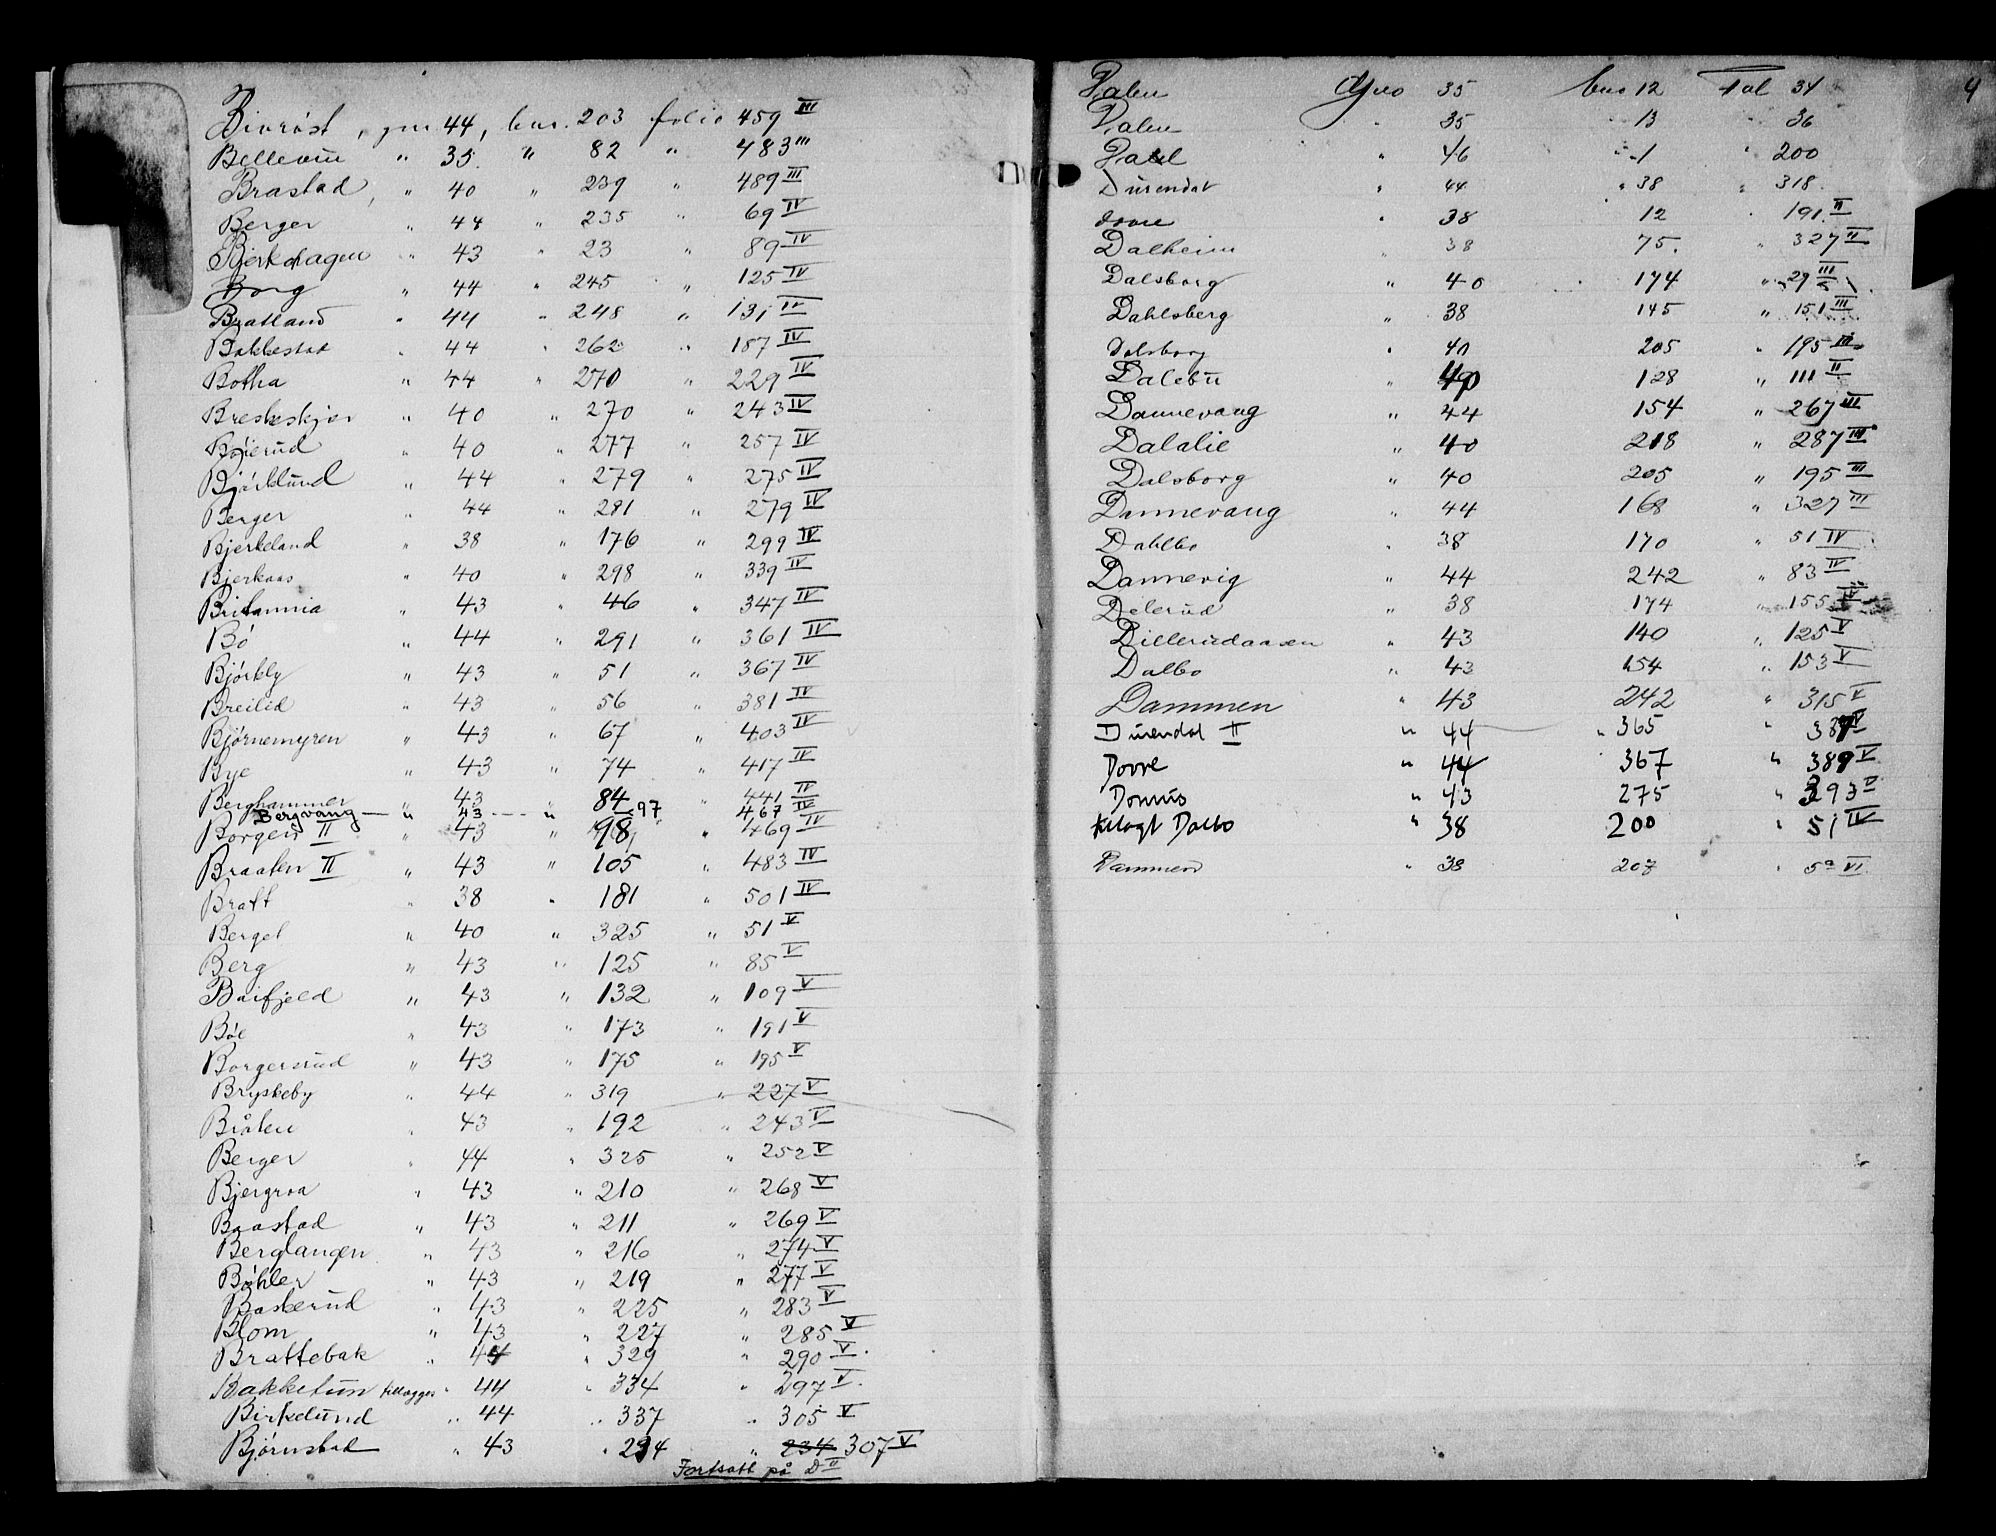 Bivrøst, gnr 44, bnr. 203 folio 459 III
Bellevue " 35. " 82 " 483 III
Brastad, " 40 " 239 " 489 III
Berger " 44 " 235 " 69 IV
Bjerkehagen " 43 " 23 " 89 IV
Borg " 44 " 245 " 125 IV
Bratland " 44 " 248 " 131 IV
Bakkestad " 44 " 262 " 187 IV
Botha " 44 " 270 " 229 IV
" 40 " 270 " 243 IV
Bøjerud " 40 " 277 " 257 IV
Bjørklund " 44 " 279 " 275 IV
Berger " 44 " 281 " 279 IV
Bjerkeland " 38 " 176 " 299 IV
Bjerkaas " 40 " 298 " 339 IV
Britannia " 43 " 46 " 347 IV
Bø " 44 " 291 " 361 IV
Bjørkly " 43 " 51 " 367 IV
Breilid " 43 " 56 " 381 IV
Bjørnemyren " 43 " 67 " 403 IV
Bye " 43 " 74 " 417 IV
Berghammer " 43 " 84 " 441 IV
Bergvang — " 43 --- " 97 467 IV
Borgen II " 43 98 " 469 IV
Braaten II " 43 " 105 " 483 IV
Bratt " 38 " 181 " 501 IV
Berget " 40 " 325 " 51 V
Berg " 43 " 125 " 85 V
Baifjeld " 43 " 132 " 109 V
Bøe " 43 " 173 " 191 V
Borgersrud " 43 " 175 " 195 V
Bryskeby " 44 " 319 " 227 V
Bråten " 43 " 192 " 243 V
Berger " 44 " 325 " 252 V
Bjergroa " 43 " 210 " 268 V
Baastad " 43 " 211 " 269 V
Berglangen " 43 " 216 " 274 V
Bøhler " 43 " 219 " 277 V
Baskerud " 43 " 225 " 283 V
Blom " 43 " 227 " 285 V
Brattebak " 44 " 329 " 290 V.
Bakketun tillægges " 44 " 334 " 297 V.
Birkelund " 44 " 337 " 305 V
Bjørnstad " 43 " 294 " 234 307 V
Fortsatt på D II
4
Dalen Gno 35 bno 12 Fol 34
Dalen " 35 " 13 " 36
Dahl " 46 " 1 " 200
Durendal " 44 " 38 " 318.
" 38 12 " 191. II
Dalheim " 38 75. " 327 II
Dalsborg " 40 174 " 29 III
Dahlsberg " 38 145 " 151 III
Dalsborg " 40 205 " 195 III
Dalebu " 40 128 " 111 II
Dannevang " 44 154 " 267 III
Dalalie " 40 218 " 287 III
Dalsborg " 40 205 " 195 III
Dannevang " 44 168 " 327 III
Dahlbo " 38 170 " 51 IV
Dannevig " 44 242 " 83 IV
Delerud " 38 174 " 155 IV
Dillerudaasen " 43 140 " 125 V
Dalbo " 43 154 " 153 V
Dammen " 43 242 " 315 V
Durendal II " 44 " 365 " 387 V
Dovre " 44 367 " 389 V
Domus " 43 275 " 393 V
tillagt Dalbo " 38 200 " 51 IV
Dammen " 38 207 " 52 VI.